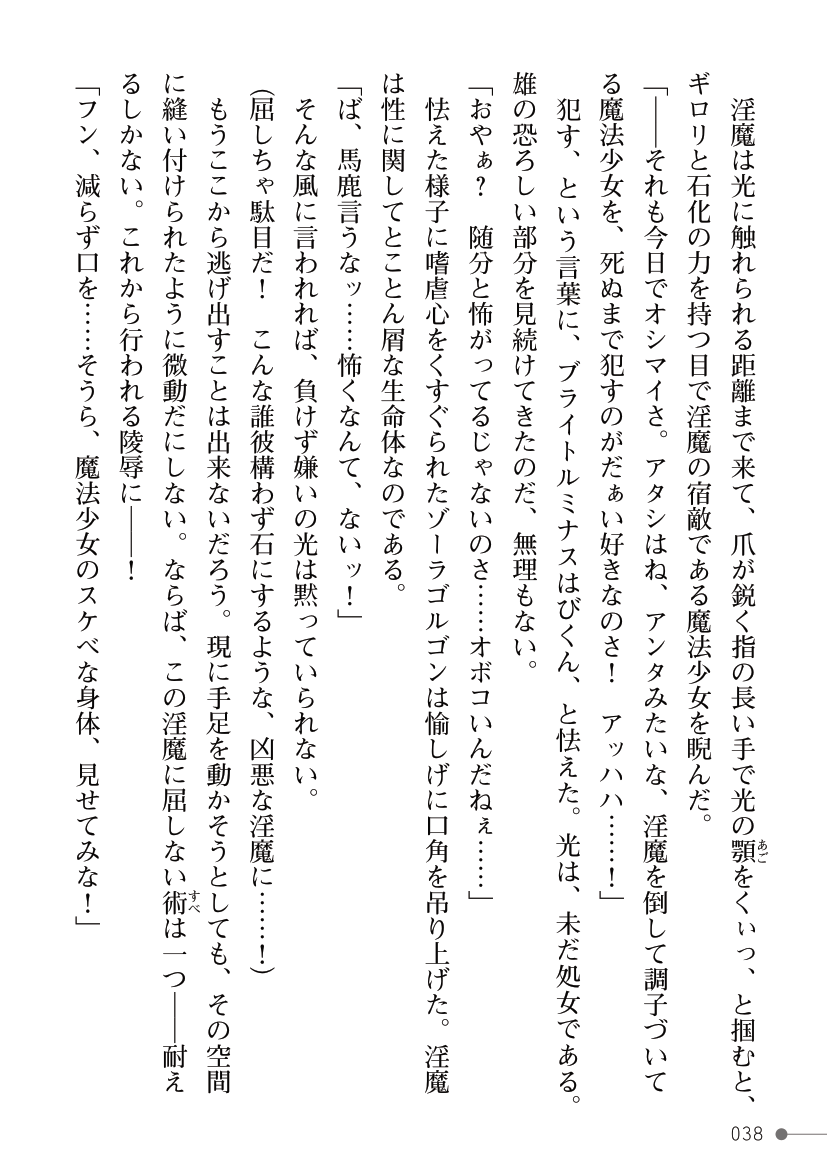 淫魔は光に触れられる距離まで来て、爪が鋭く指の長い手で光の顎をくぃっ、と掴むと、
あご
ギロリと石化の力を持つ目で淫魔の宿敵である魔法少女を睨んだ。
「――それも今日でオシマイさ。アタシはね、アンタみたいな、淫魔を倒して調子づいて
る魔法少女を、死ぬまで犯すのがだぁい好きなのさ！　アッハハ……！」
犯す、という言葉に、ブライトルミナスはびくん、と怯えた。光は、未だ処女である。
雄の恐ろしい部分を見続けてきたのだ、無理もない。
「おやぁ？　随分と怖がってるじゃないのさ……オボコいんだねぇ……」
怯えた様子に嗜虐心をくすぐられたゾーラゴルゴンは愉しげに口角を吊り上げた。淫魔
は性に関してとことん屑な生命体なのである。
「ば、馬鹿言うなッ……怖くなんて、ないッ！」
そんな風に言われれば、負けず嫌いの光は黙っていられない。
（屈しちゃ駄目だ！　こんな誰彼構わず石にするような、凶悪な淫魔に……！）
もうここから逃げ出すことは出来ないだろう。現に手足を動かそうとしても、その空間
に縫い付けられたように微動だにしない。ならば、この淫魔に屈しない術は一つ――耐え
すべ
るしかない。これから行われる陵辱に――！
「フン、減らず口を……そうら、魔法少女のスケベな身体、見せてみな！」
038